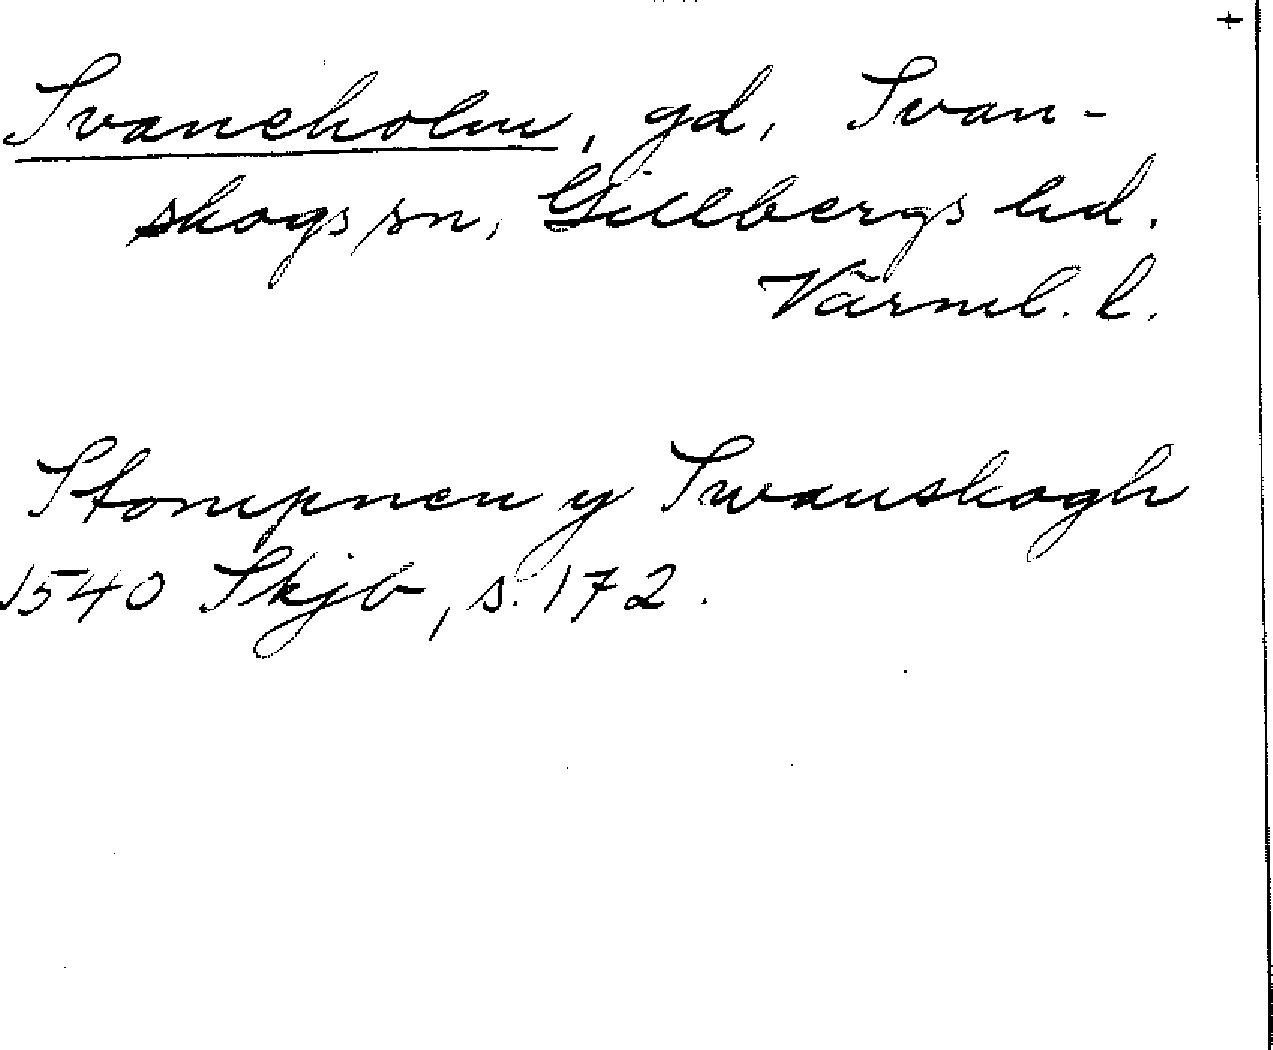 +
Svaneholm, gd, Svan-
skogs sn, Gillbergs hd.
Värml. l.
Stompnen y Swanskogh
1540 Skjb, s. 172.